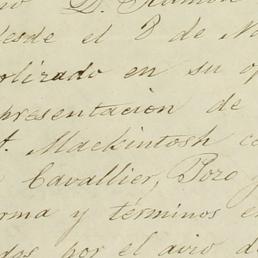 D. Ramon
desde el 8 de No
olizado en su op
presentacion de
t. Mackintosh co
Cavallier, Pozo y
orma y términos e
dos por el avio d